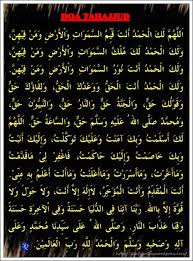 DOA TAHAJJUD
اَللَّهُمَّ لَكَ الْحَمْدُ أَنْتَ قَيِّمُ السَّمَوَاتِ وَالْأَرْضِ وَمَنْ فِيهِنَّ،
وَلَكَ الْحَمْدُ لَكَ مُلْكُ السَّمَوَاتِ وَالْأَرْضِ وَمَنْ فِيهِنَّ،
وَلَكَ الْحَمْدُ أَنْتَ نُورُ السَّمَوَاتِ وَالْأَرْضِ وَمَنْ فِيهِنَّ،
وَلَكَ الْحَمْدُ أَنْتَ الْحَقُّ، وَوَعْدُكَ الْحَقُّ، وَلِقَاؤُكَ حَقٌّ
وَقَوْلُكَ حَقٌّ، وَالْجَنَّةُ حَقٌّ، وَالنَّارُ حَقٌّ، وَالنَّبِيُّونَ حَقٌّ،
وَمُحَمَّدٌ صَلَّى اللهُ عَلَيْهِ وَسَلَّمَ حَقٌّ، وَالسَّاعَةُ حَقٌّ. اَللَّهُمَّ
لَكَ أَسْلَمْتُ وَبِكَ آمَنْتُ وَعَلَيْكَ تَوَكَّلْتُ، وَإِلَيْكَ أَنَبْتُ
وَبِكَ خَاصَمْتُ وَإِلَيْكَ حَاكَمْتُ، فَاغْفِرْ لِي مَا قَدَّمْتُ
وَمَا أَخَّرْتُ، وَمَا أَسْرَرْتُ وَمَا أَعْلَنْتُ،
أَنْتَ الْمُقَدِّمُ وَأَنْتَ الْمُؤَخِّرُ، لَا إِلَهَ إِلَّا أَنْتَ، وَلَا حَوْلَ وَلَا
قُوَّةَ إِلَّا بِاللهِ. رَبَّنَا آتِنَا فِي الدُّنْيَا حَسَنَةً وَفِي الْآخِرَةِ حَسَنَةً
وَقِنَا عَذَابَ النَّارِ. وَصَلَّى اللهُ عَلَى سَيِّدِنَا مُحَمَّدٍ وَعَلَى
آلِهِ وَصَحْبِهِ وَسَلَّمَ وَالْحَمْدُ لِلهِ رَبِّ الْعَالَمِينَ.